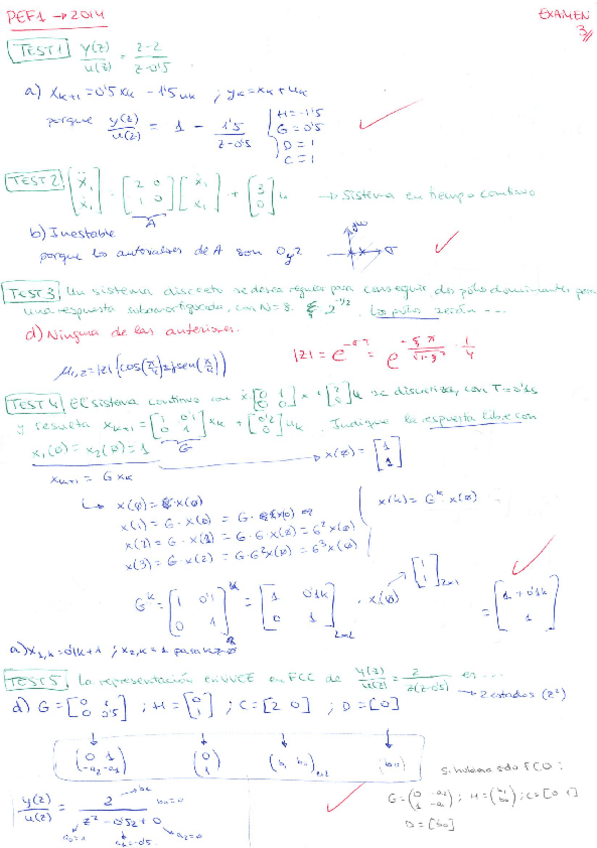 PEF1 → 2014
EXAMEN 3
TEST1 y(z)/u(z) = z-2/z-0'5
a) x_{k+1} = 0'5x_k - 1'5u_k ; y_k = x_k + u_k
porque y(z)/u(z) = 1 - 1'5/z-0'5
H = -1'5
G = 0'5
D = 1
C = 1
TEST2 [ẍ_1 ẋ_1] = [2 0 1 0] [ẋ_1 x_1] + [3 0] u → Sistema en tiempo continuo
A
b) Inestable
porque los autovalores de A son 0 y 2
TEST3 Un sistema discreto se desea regular para conseguir dos polos dominantes para
una respuesta subamortiguada, con N=8. 2^{-1/2} Los polos serán ...
d) Ninguna de las anteriores.
μ_{1,2} = |z| (cos(π/4) ± j sen(π/4))
TEST4 El sistema continuo con ẋ = [0 1 0 0] x + u se discretiza, con T=0'1s
y resulta x_{k+1} = [1 0'1 0 1] x_k + [0'2 0] u_k. Indique la respuesta libre con
x_1(0) = x_2(0) = 1
G
→ x(0) = [1 1]
x_{k+1} = G x_k
x(1) = G · x(0) = G · x(0)
x(2) = G · x(1) = G · G · x(0) = G² x(0)
x(3) = G · x(2) = G · G² x(0) = G³ x(0)
x(k) = G^k · x(0)
G^k = [1 0'1 0 1]^k = [1 0'1k 0 1]_{2×2} · x(0) [1 1]_{2×1} = [1 + 0'1k 1]
a) x_{1,k} = 0'1k+1 ; x_{2,k} = 1 para
TEST5 La representación en VVEE en FCC de y(z)/u(z) = 2/z(z-0'5) es ...
→ 2 estados (z²)
d) G = [0 1 0 0'5] ; H = [0 1] ; C = [2 0] ; D = [0]
(0 1 -a_2 -a_1) (0 1)
Si hubiera sido FCO:
G = (0 -a_2 1 -a_1) ; H = ; C = [0 1]
D = [b_0]
y(z)/u(z) = 2/z² - 0'5z + 0
a_1 = -0'5
a_2 = 0